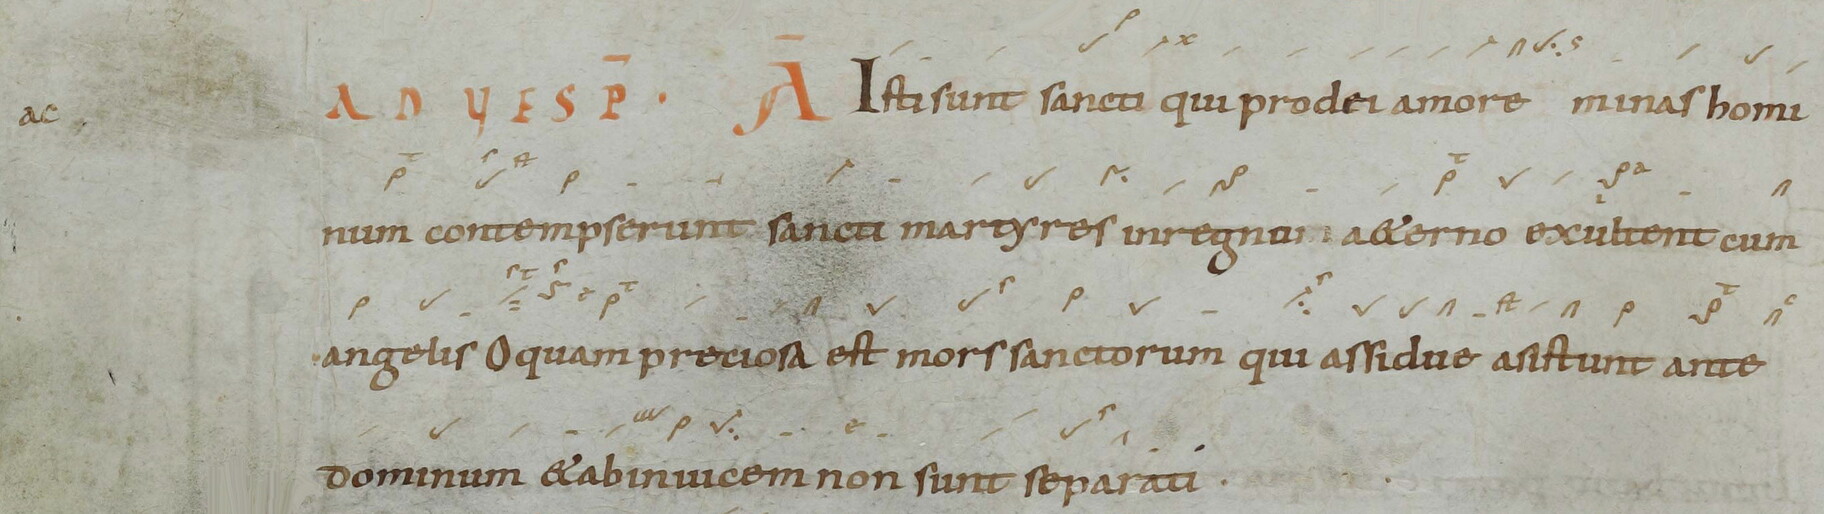 ac
AD VESP̄. Ā Isti sunt sancti qui pro dei amore minas homi
num contempserunt sancti martyres in regnum a&erno exultent cum
angelis O quam preciosa est mors sanctorum qui assidue asistunt ante
dominum & abinuicem non sunt separati .